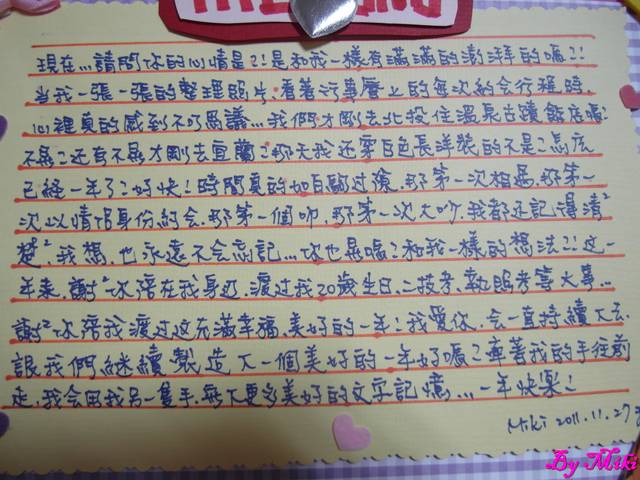 現在...請問你的心情是?!是和我一樣有滿滿的澎湃的嗎?!
當我一張一張的整理照片,看著行事曆上的每次約會行程時,
心裡真的感到不可思議...我們才剛去北投住溫泉古蹟飯店嗎?
不是?還有不是才剛去宜蘭?那天我還穿白色長洋裝的不是?怎麼
已經一年了?好快!時間真的如白駒過隙,那第一次相遇,那第一
次以情侶身份約會,那第一個吻,那第一次大吵,我都還記得清²
楚²,我想,也永遠不會忘記...你也是嗎?和我一樣的想法?!這一
年來,謝²你陪在我身邊,渡過我20歲生日、二技考、執照考等大事...
謝²你陪我渡過這充滿幸福、美好的一年?我愛你,會一直持續下去,
讓我們繼續製造下一個美好的一年好嗎?牽著我的手往前
走,我會用我另一隻手,寫下更多美好的文字記憶...一年快樂!
Miki 2011.11.27
By Miki